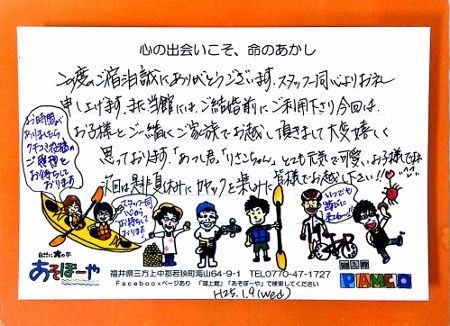 心の出会いこそ、命のあかし
この度のご宿泊誠にありがとうございます。スタッフ一同心よりお礼
申し上げます。また当館には、ご結婚前にご利用下さり今回は、
お子様とご一緒にご家族でお越し頂きまして大変嬉しく
思っております。「あっ君」「りさこちゃん」とても元気で可愛いお子様ですね
次回は是非夏休みにカヤックを楽しみに皆様でお越し下さい!!
お時間が
ありましたら
クチコミ投稿の
ご感想を
お待ちして
おります
スタッフ一同
心から
お待ちして
おります
いつでも
遊びに
あそぼーや
PAMCO
福井県三方上中郡若狭町海山64-9-1 TEL0770-47-1727
Facebookページあり 「湖上館」「あそぼーや」で検索してください
H25.1.9(wed)